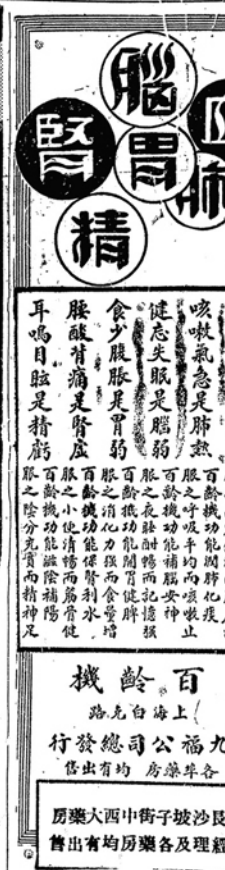 腦
肺
胃
腎
精
咳嗽氣急是肺熱
百齡機功能潤肺化痰
服之呼吸平均而咳嗽止
健忘失眠是腦弱
百齡機功能補腦安神
服之夜睡酣暢而記憶強
食少腹脹是胃弱
百齡機功能開胃健脾
服之消化力強而食量增
腰酸背痛是腎虛
百齡機功能保腎利水
服之小便清暢而筋骨健
耳鳴目眩是精虧
百齡機功能滋陰補陽
服之陰分充實而精神足
百齡機
上海白克路
九福公司總發行
各埠藥房均有出售
長沙坡子街中西大藥房
經理及各藥房均有出售